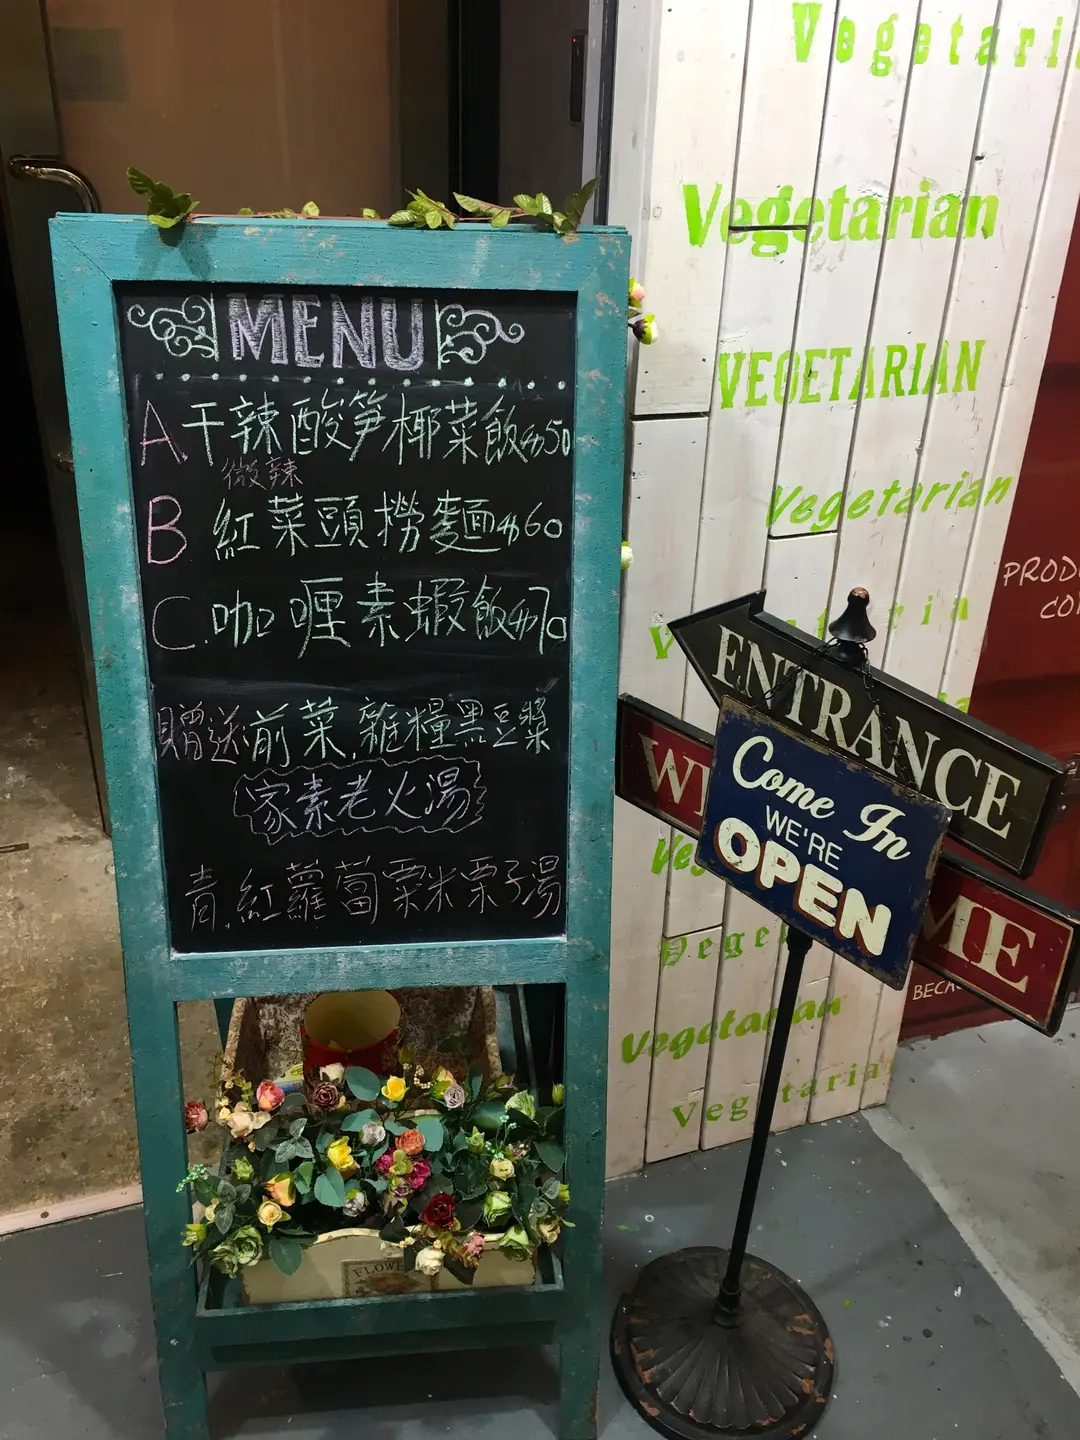 MENU
A 干辣酸笋椰菜飯 $50
微辣
B 紅菜頭撈麵 $60
C. 咖喱素蝦飯 $70
贈送前菜.雜糧黑豆漿
家素老火湯
青.紅蘿蔔粟米栗子湯
FLOWE
Vegetari
Vegetarian
VEGETARIAN
Vegetarian
PROD
CO
ENTRANCE
Come In
WE'RE
OPEN
WE
ME
BECA
Veget
Vegetarian
Vegetarian